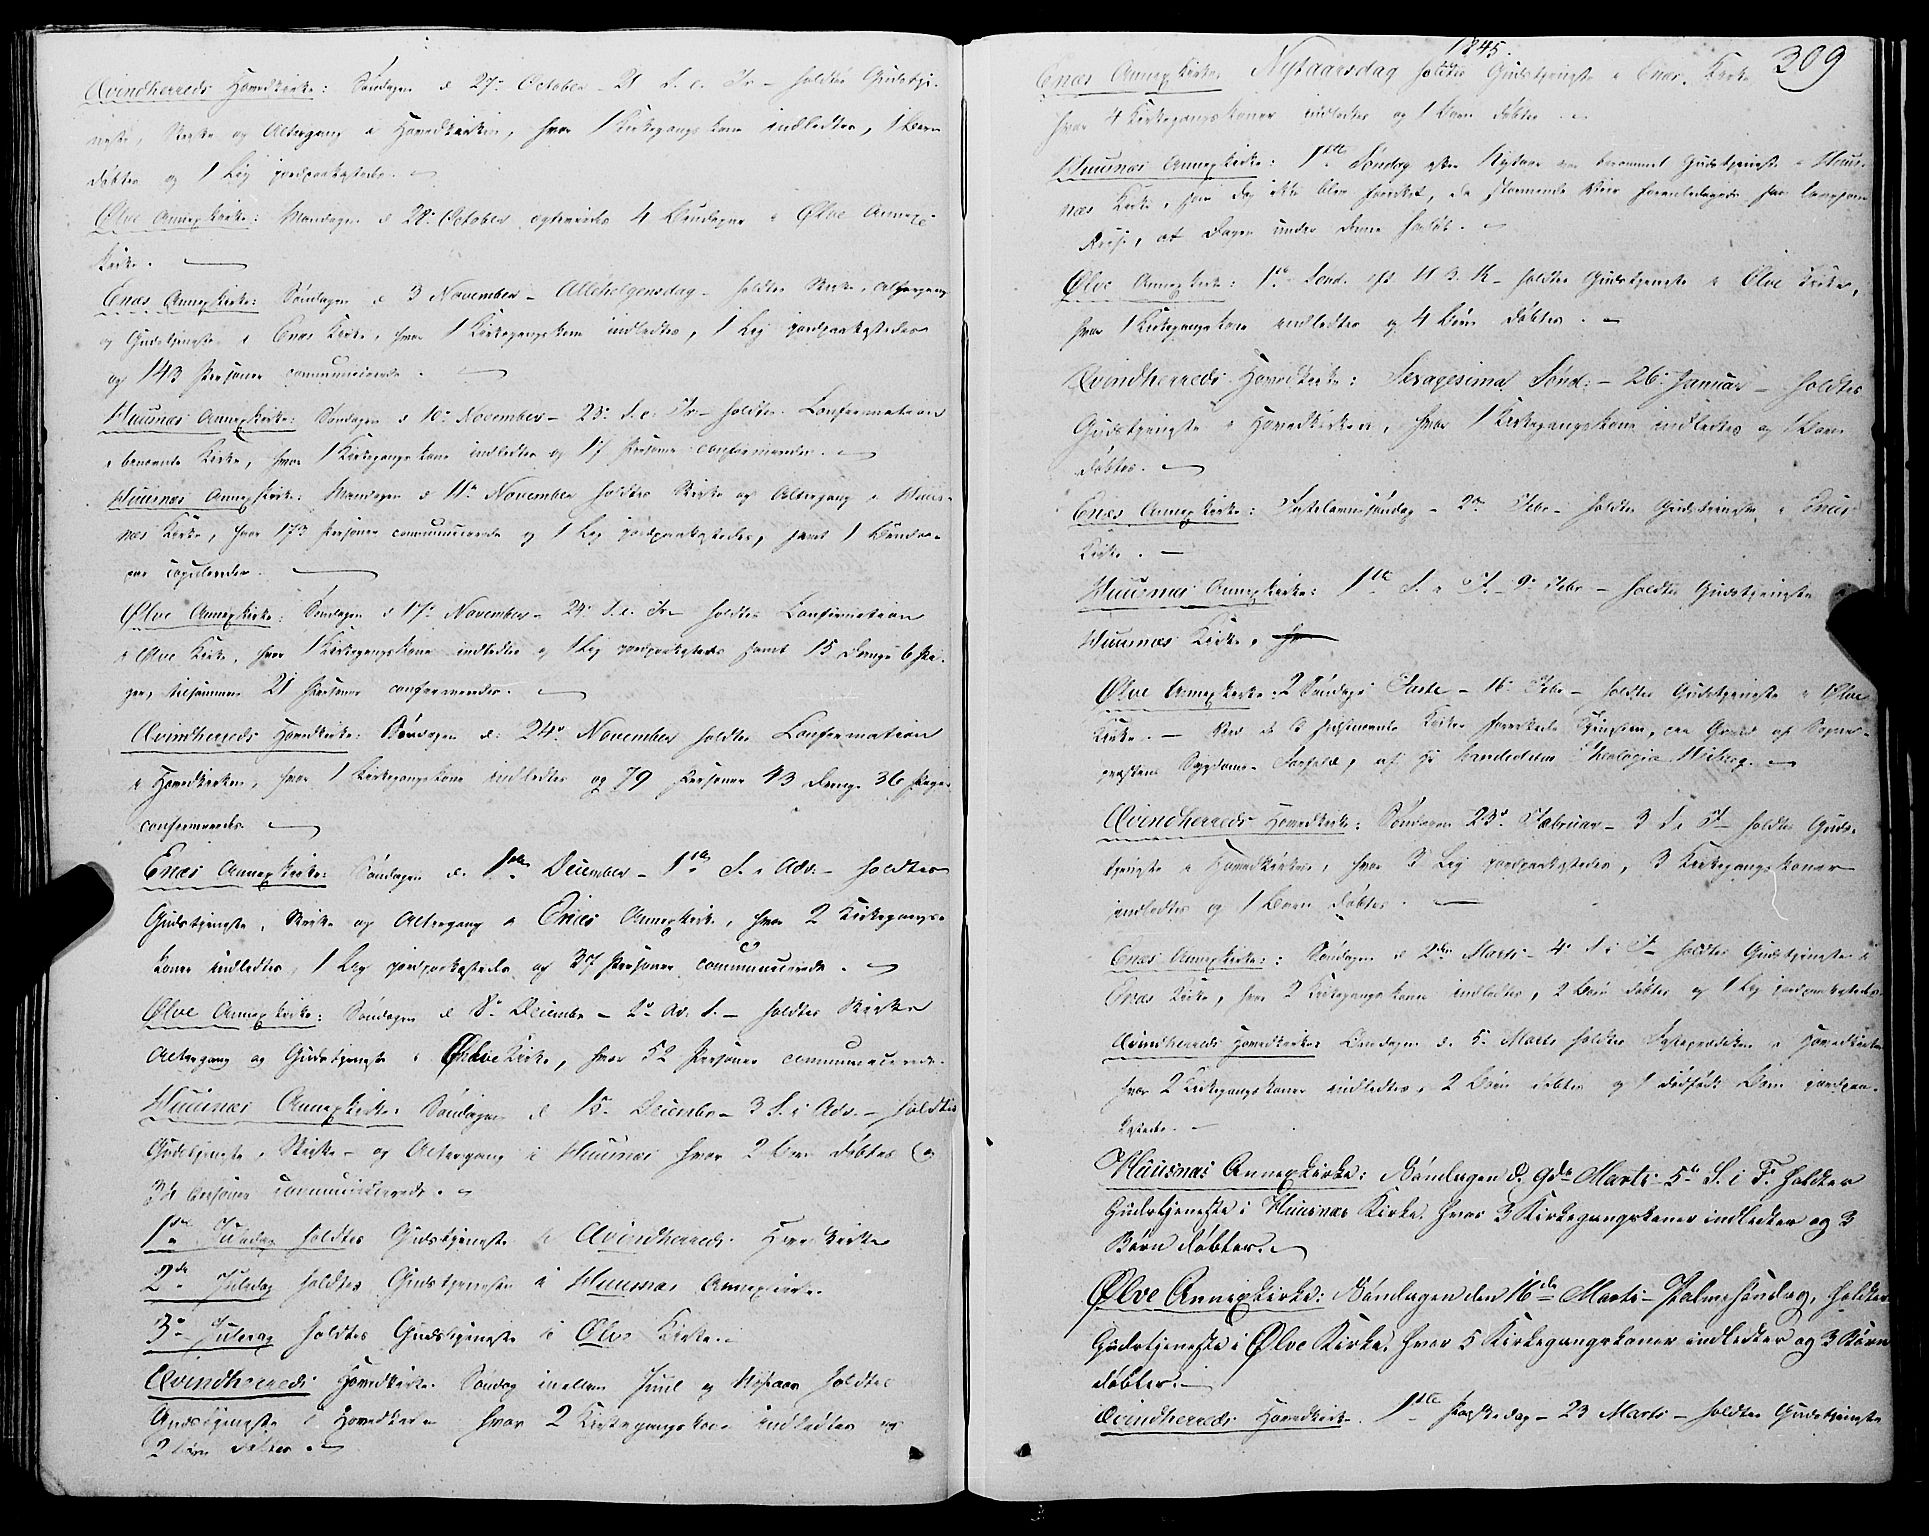 Qvindherreds Hovedkirke: Søndagen d 27de October 21 S. e. Tr. – holdtes Gudstje-
neste, Skrifte og Altergang i Hovedkirken, hvor 1 Kirkegangskone indledtes, 1 Barn
døbtes og 1 Lig jordpaakastedes.
Ølve Annexkirke: Mandagen d 28de October egteviedes 4 Brudepar i Ølve Annex-
Kirke.
Enæs Annexkirke: Søndagen d 3 November – Allehelgensdag – holdtes Skrifte, Altergang
og Gudstjeneste i Enæs Kirke, hvor 1 Kirkegangskone indledtes, 1 Lig jordpaakastedes
og 143 Personer communicerede.
Huusnæs Annexkirke: Søndagen d 10de November – 23de S. e. Tr – holdtes Confirmation
i benævnte Kirke, hvor 1 Kirkegangskone indledtes og 17 Personer confirmeredes.
Huusnæs Annexkirke: Mandagen d 11te November holdtes Skrifte og Altergang i Huus-
næs Kirke, hvor 173 Personer communicerede og 1 Lig jordpaakastedes, samt 1 Brude-
par copuleredes.
Ølve Annexkirke: Søndagen d 17de November – 24de S. e. Tr – holdtes Confirmation
i Ølve Kirke, hvor 1 Kirkegangskone indledtes og 1 Lig jordpaakastedes samt 15 Drenge 6 Pi-
ger, tilsammen 21 Personer confirmeredes.
Qvindherreds Hovedkirke: Søndagen d: 24de November holdtes Confirmation
i Hovedkirken, hvor 1 Kirkegangskone indledtes og 79 Personer 43 Dreng. 36 Piger
confirmeredes.
Enæs Annexkirke: Søndagen d. 1ste December – 1ste S. i Adv. – holdtes
Gudstjeneste, Skrifte og Altergang i Enæs Annexkirke, hvor 2 Kirkegangs-
koner indledtes, 1 Lig jordpaakastedes og 37 Personer communicerede.
Ølve Annexkirke: Søndagen d 8de Decembr – 2de Adv. S. – holdtes Skrifte
Altergang og Gudstjeneste i Ølve Kirke, hvor 52 Personer communicerede.
Huusnæs Annexkirke: Søndagen d 15de Decembr – 3 S. i Adv. – holdtes
Gudstjeneste, Skrifte – og Altergang i Huusnæs hvor 2 Børn døbtes og
Personer communicerede.
1ste Juledag holdtes Gudstjeneste i Qvindherreds Hovedkirke
2den Juledag holdtes Gudstjeneste i Huusnæs Annexkirke
3de Juledag holdtes Gudstjeneste i Ølve Kirke.
Qvindherreds Hovedkirke Søndag mellem Juul og Nytaar holdtes
Gudstjeneste i Hovedkirken hvor 2 Kirkegangskoner indledtes og
2 Børn døbtes.
1845.
309
Enæs Annexkirke Nytaarsdag holdtes Gudstjeneste i Enæs Kirke
hvor 4 Kirkegangskoner indledtes og 1 Barn døbtes.
Huusnæs Annexkirke: 1ste Søndag efter Nytaar var berammet Gudstjeneste i Huus-
næs Kirke, som dog ikke blev forrettet, da Veir foranledigede saa langsom
Reise, at Dagen under denne forløb.
Ølve Annexkirke: 1ste Sønd. eft H. 3 K – holdtes Gudstjeneste i Ølve Kirke,
hvor 1 Kirkegangskone indledtes og 4 Børn døbtes.
Qvindherreds Hovedkirke: Sexagesima Sønd: – 26de Januar – holdtes
Gudstjeneste i Hovedkirken, hvor 1 Kirkegangskone indledtes og 1 Barn
døbtes.
Enæs Annexkirke: Fastelavnssøndag – 2den Febr – holdtes Gudstjeneste i Enæs
Kirke.
Huusnæs Annexkirke: 1ste S. i F. 9de Febr – holdtes Gudstjeneste
Huusnæs Kirke,
Ølve Annexkirke: 2 Søndag i Faste – 16 Febr – holdtes Gudstjeneste i Ølve
Kirke. – Ved de 6 Kirker forrettede Tjenesten, paa Grund af Sogne-
præstens Sygdoms-Forfald, af Hr Candidatus Theologia Wiborg.
Qvindherreds Hovedkirke: Søndagen 23de Februar – 3 S. i F – holdtes Guds-
tjeneste i Hovedkirken, hvor 3 Lig jordpaakastedes, 3 Kirkegangskoner
indledtes og 1 Barn døbtes.
Enæs Annexkirke: Søndagen d 2den Marts – 4de S. i F – holdtes Gudstjeneste i
Enæs Kirke, hvor 2 Kirkegangskoner indledtes, 2 Børn døbtes og 1 Lig jordpaakastedes.
Qvindherreds Hovedkirke: Onsdagen d. 5. Marts holdtes Fasteprædiken i Hovedkirken
hvor 2 Kirkegangskoner indledtes, 2 Børn døbtes og 1 dødfødt Barn jordpaa-
kastedes.
Huusnæs Annexkirke: Søndagen d. 9de Marts – 5te S. i F. holdtes
Gudstjeneste i Huusnæs Kirke, hvor 3 Kirkegangskoner indledtes og 3
Børn døbtes.
Ølve Annexkirke: Søndagen den 16de Marts – Palmesøndag, holdtes
Gudstjeneste i Ølve Kirke, hvor 5 Kirkegangskoner indledtes og 3 Børn
døbtes.
Qvindherreds Hovedkirke. 1ste Paaskedag – 23 Marts – holdtes Gudstjeneste